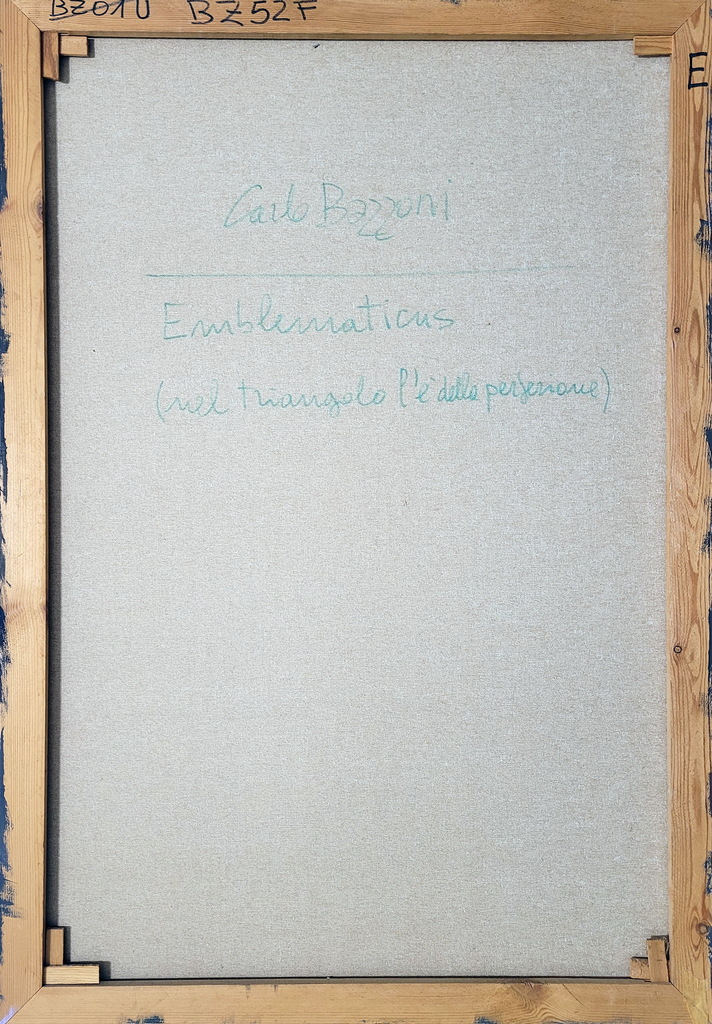 BZ01U BZ52F
E
Carlo Bazzoni
Emblematicus
(nel triangolo l'è della